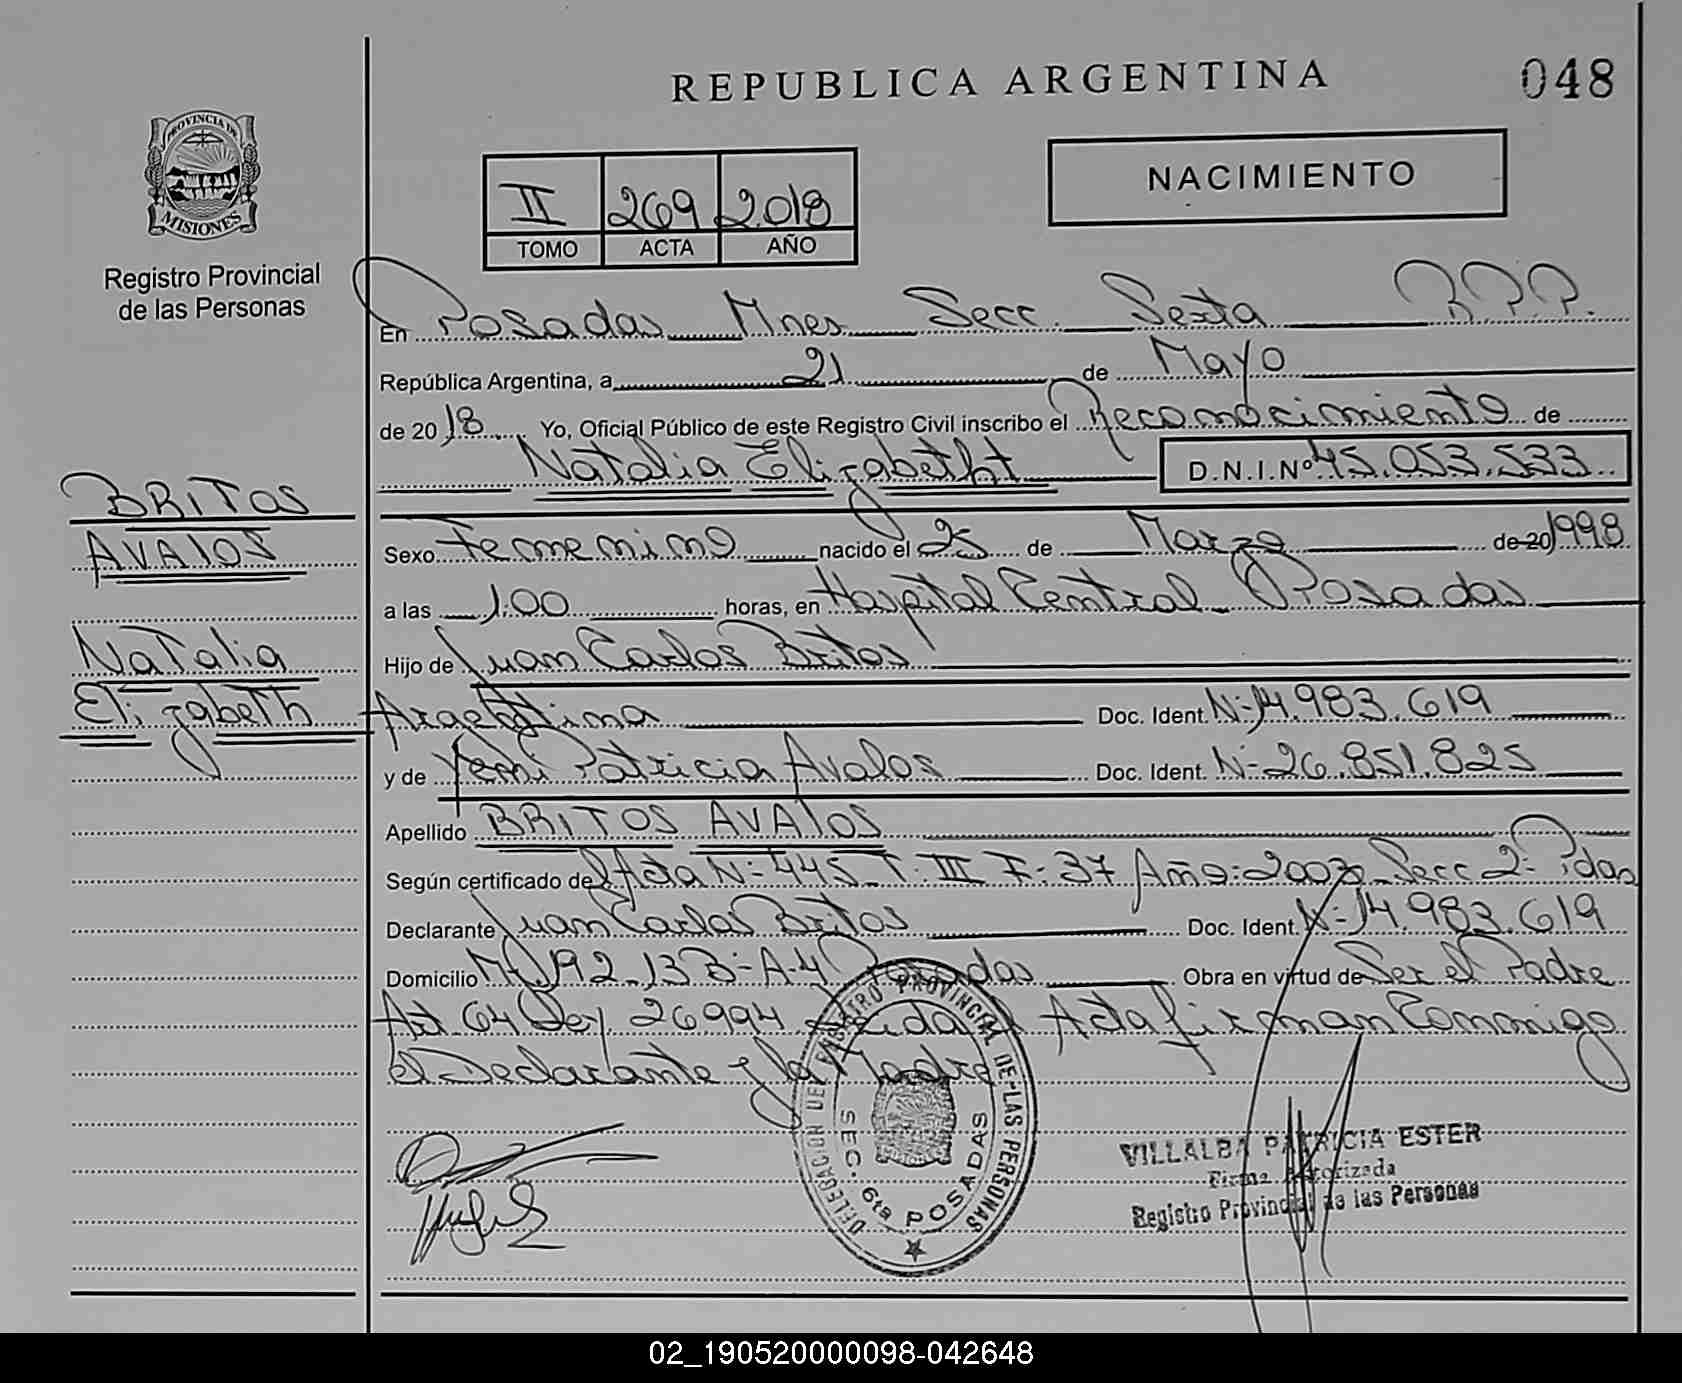 REPUBLICA ARGENTINA
048
PROVINCIA DE
MISIONES
Registro Provincial
de las Personas
NACIMIENTO
II 269 2018
TOMO ACTA AÑO
En Posadas Mnes Secc. Sexta R.P.P.
República Argentina, a 21 de Mayo
de 2018. Yo, Oficial Público de este Registro Civil inscribo el Reconocimiento de
Natalia Elizabetht D.N.I.Nº 45.053.533
BRITOS
AVALOS
Natalia
Elizabeth
Sexo Femenino nacido el 25 de Marzo de 20 1998
a las 1:00 horas, en Hospital Central Posadas
Hijo de Juan Carlos Britos
Argentina Doc. Ident. Nº 14.983.619
y de Yeni Patricia Avalos Doc. Ident. Nº 26.851.825
Apellido BRITOS AVALOS
Según certificado del Acta Nº 445 T: III F: 37 Año: 2003 Secc 2º Pdas
Declarante Juan Carlos Britos Doc. Ident. Nº 14.983.619
Domicilio 192 13 B- A-4 Posadas Obra en virtud de Ser el Padre
Art 64 Ley 26994 Acta firman Conmigo
el Declarante y la Madre
DELEGACION DEL REGISTRO PROVINCIAL DE LAS PERSONAS
SEC. 6ta POSADAS
VILLALBA PATRICIA ESTER
Firma Autorizada
Registro Provincial de las Personas
02_190520000098-042648